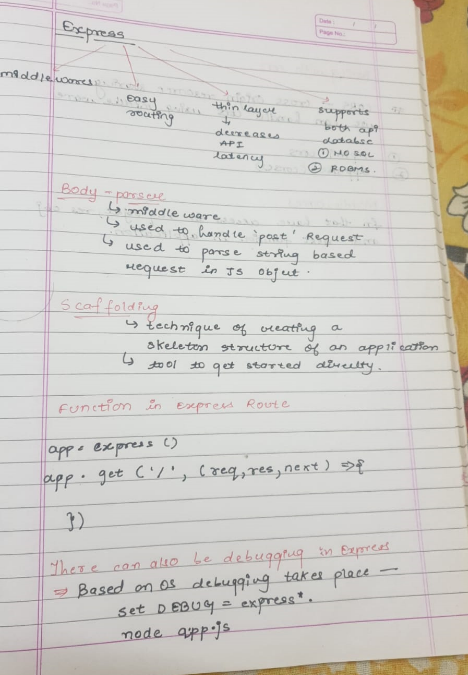 Date :    /    /
Page No.:
Express
middlewares
easy
routing
thin layer
↓
decreases
API
latency
supports
both api
databse
① NO SQL
② RDBMS.
Body-parser
↳ middleware
↳ used to handle 'post' Request
↳ used to parse string based
request in JS Object.
Scaffolding
↳ technique of creating a
skeleton structure of an application
↳ tool to get started directly.
Function in Express Route
app = express ()
app . get ('/', (req,res,next) =>{
})
There can also be debugging in Express
⇒ Based on OS debugging takes place —
set DEBUG = express*.
node app.js